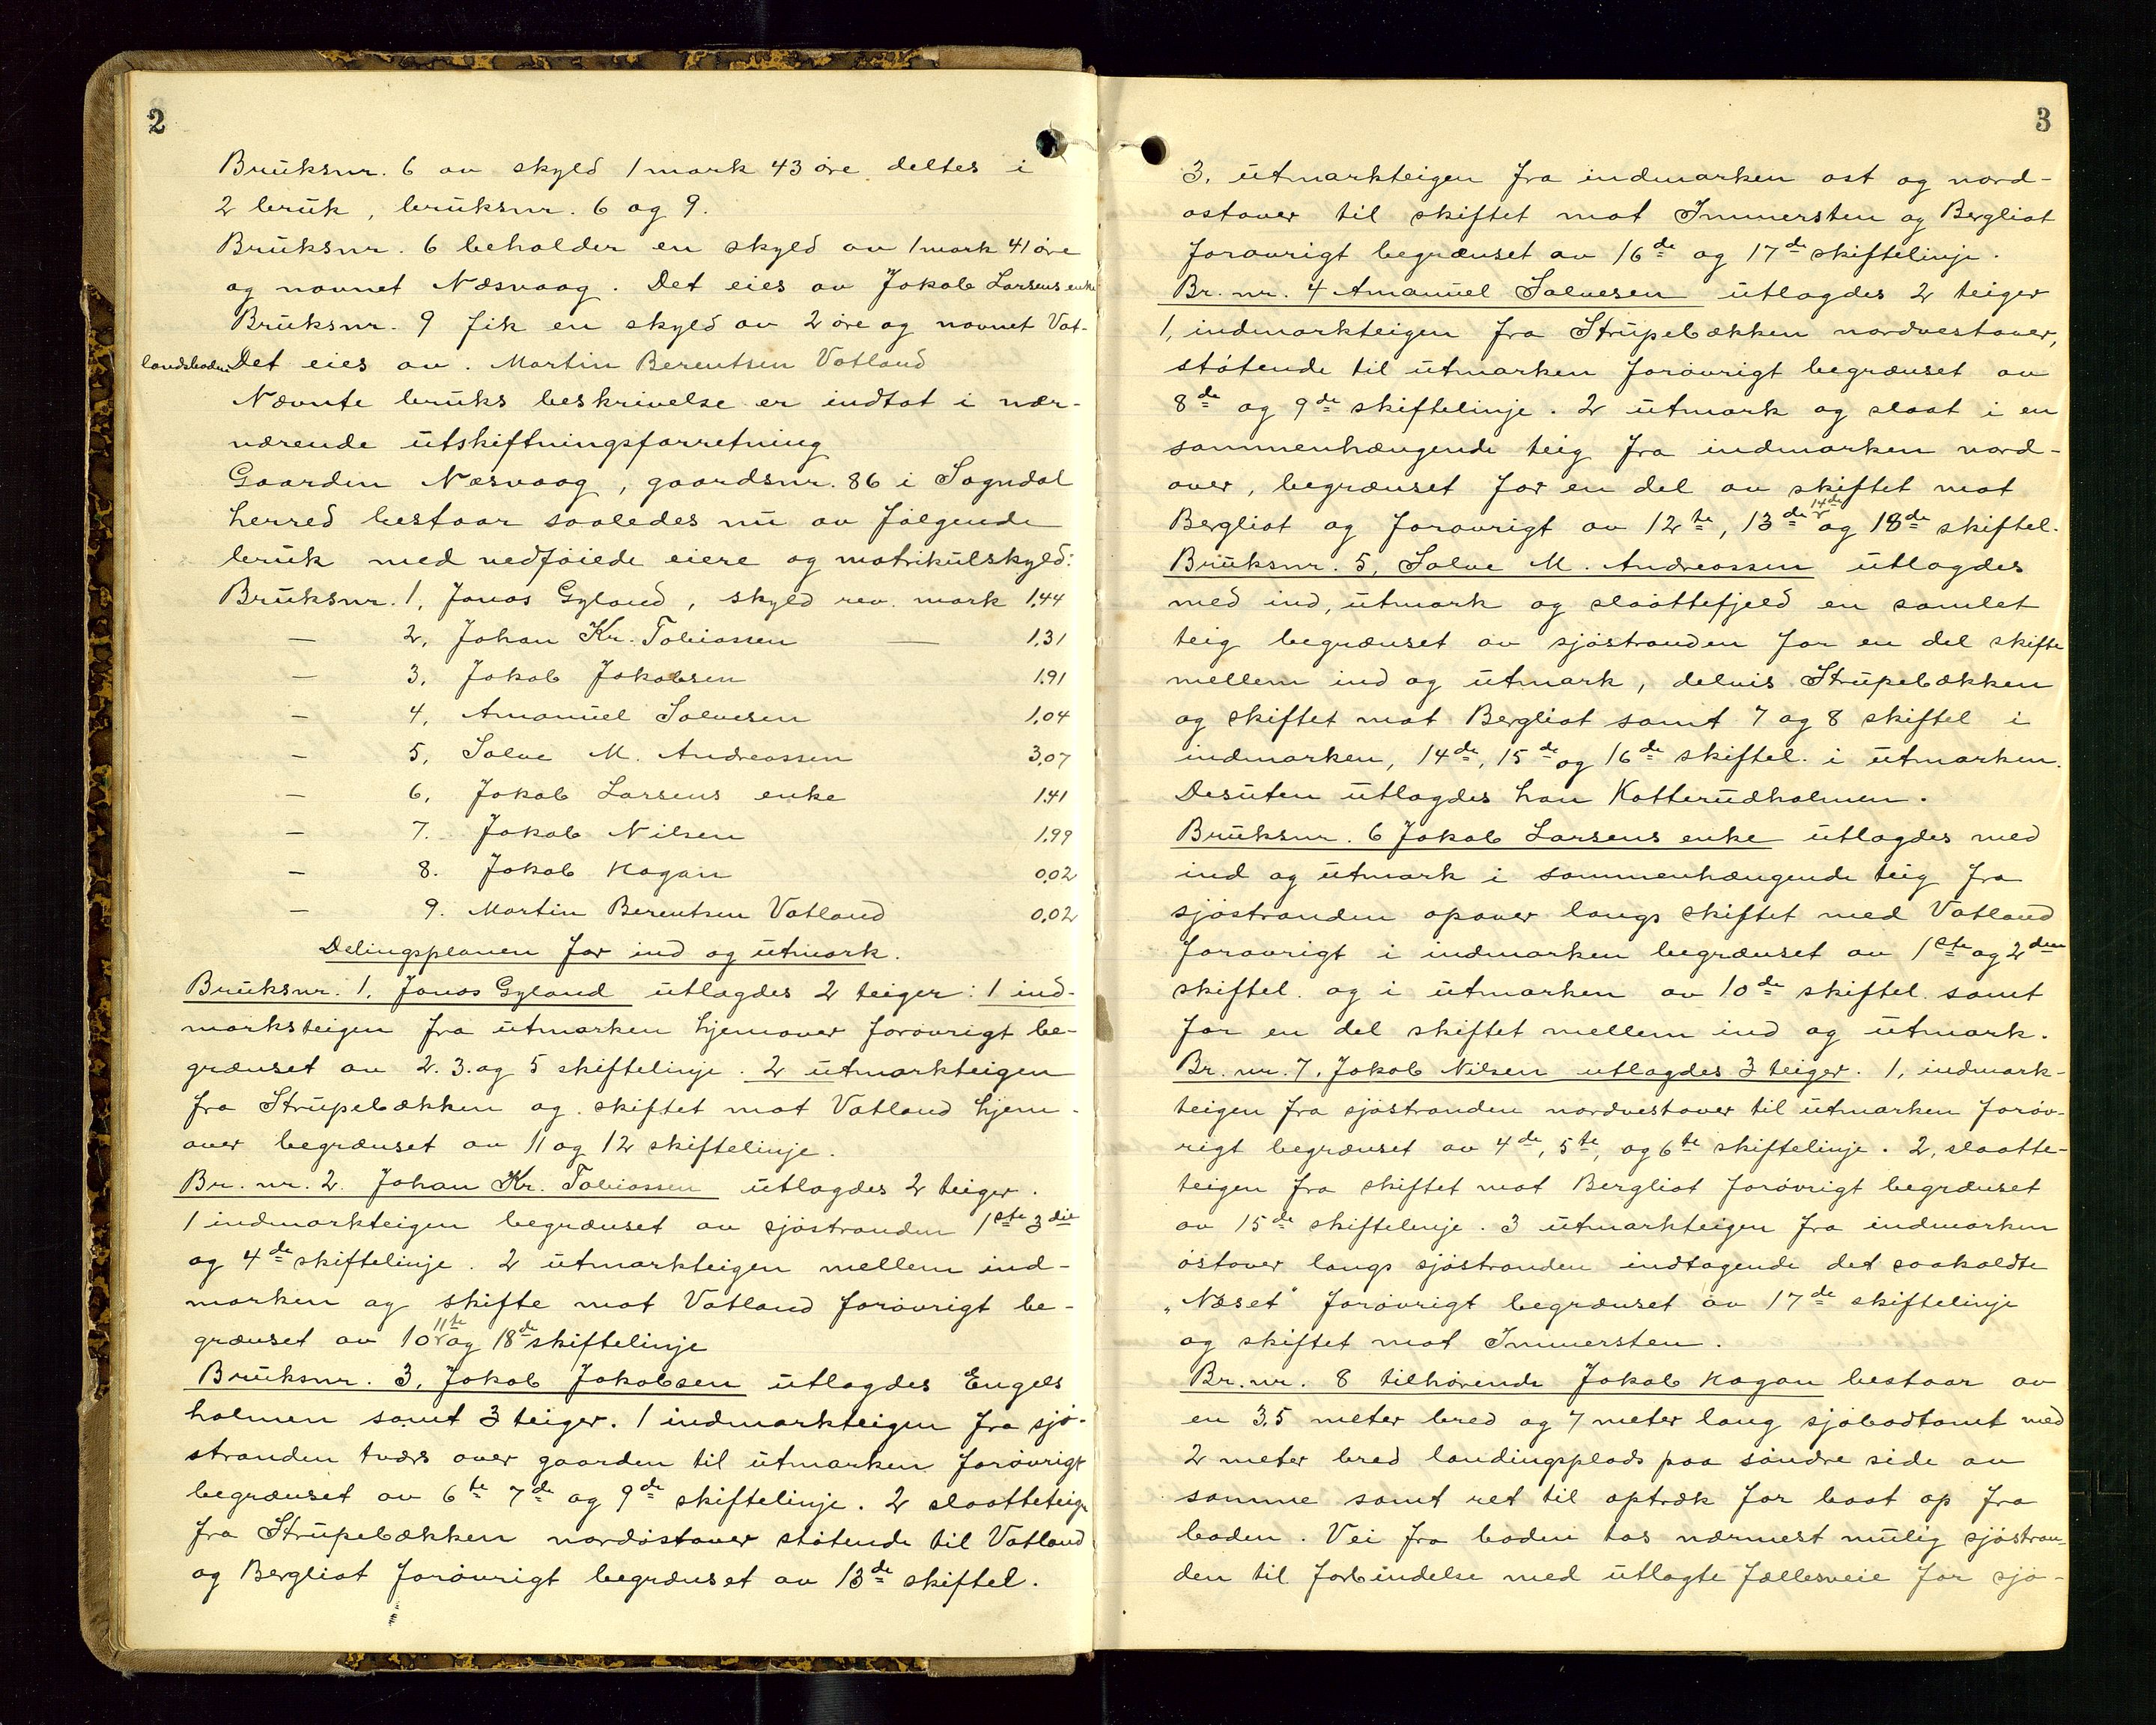 2
Bruksnr. 6 av skyld 1 mark 43 øre deltes i
2 bruk, bruksnr. 6 og 9.
Bruksnr. 6 beholder en skyld av 1 mark 41 øre
og navnet Næsvaag. Det eies av Jakob Larsens enke
Bruksnr. 9 fik en skyld av 2 øre og navnet Vat-
landsboden Det eies av. Martin Berentsen Vatland
Nævnte bruks beskrivelse er indtat i nær-
værende utskiftningsforretning
Gaarden Næsvaag, gaardsnr. 86 i Sogndal
herred bestaar saaledes nu av følgende
bruk med vedføiede eiere og matrikulskyld:
Bruksnr. 1, Jonas Gyland, skyld rev. mark 1,44
— 2, Johan Kr. Tobiassen — 1,31
— 3, Jakob Jakobsen 1,91
— 4, Amanuel Salvesen 1,04
— 5, Salve M. Andreassen 3,07
— 6, Jakob Larsens enke 1,41
— 7. Jakob Nilsen 1,99
— 8. Jakob Hagan 0,02
— 9. Martin Berentsen Vatland 0,02
Delingsplanen for ind og utmark.
Bruksnr. 1, Jonas Gyland utlagdes 2 teiger: 1 ind-
marksteigen fra utmarken hjemover forøvrigt be-
grænset av 2. 3. og 5 skiftelinje. 2 utmarkteigen
fra Strupebækken og skiftet mot Vatland hjem-
over begrænset av 11 og 12 skiftelinje.
Br. nr. 2. Johan Kr. Tobiassen utlagdes 2 teiger.
1 indmarkteigen begrænset av sjøstranden 1ste 3die
og 4de skiftelinje. 2 utmarkteigen mellem ind-
marken og skifte mot Vatland forøvrigt be-
grænset av 10 11te og 18de skiftelinje
Bruksnr. 3, Jakob Jakobsen utlagdes Engels
holmen samt 3 teiger. 1 indmarkteigen fra sjø-
stranden tværs over gaarden til utmarken forøvrigt
begrænset av 6te 7de og 9de skiftelinje. 2 slaatteteigen
fra Strupebækken nordøstover støtende til Vatland
og Bergliot forøvrigt begrænset av 13de skiftel.
3
3, utmarkteigen fra indmarken øst og nord-
østover til skiftet mot Immersten og Bergliot
forøvrigt begrænset av 16de og 17de skiftelinje.
Br. nr. 4 Amanuel Salvesen utlagdes 2 teiger
1, indmarkteigen fra Strupebækken nordvestover,
støtende til utmarken forøvrigt begrænset av
8de og 9de skiftelinje. 2 utmark og slaat i en
sammenhængende teig fra indmarken nord-
over, begrænset for en del av skiftet mot
Bergliot og forøvrigt av 12te, 13de 14de og 18de skiftel.
Bruksnr. 5, Salve M. Andreassen utlagdes
med ind, utmark og slaattefjeld en samlet
teig begrænset av sjøstranden for en del skifte
mellem ind og utmark, delvis Strupebækken
og skiftet mot Bergliot samt 7 og 8 skiftel i
indmarken, 14de, 15de og 16de skiftel. i utmarken.
Desuten utlagdes han Katterudholmen.
Bruksnr. 6 Jakob Larsens enke utlagdes med
ind og utmark i sammenhængende teig fra
sjøstranden opover langs skiftet med Vatland
forøvrigt i indmarken begrænset av 1ste og 2den
skiftel. og i utmarken av 10de skiftel. samt
for en del skiftet mellem ind og utmark.
Br. nr. 7, Jakob Nilsen utlagdes 3 teiger. 1, indmark-
teigen fra sjøstranden nordvestover til utmarken forøv-
rigt begrænset av 4de, 5te, og 6te skiftelinje. 2, slaatte-
teigen fra skiftet mot Bergliot forøvrigt begrænset
av 15de skiftelinje. 3 utmarkteigen fra indmarken
østover langs sjøstranden indtagende det saakaldte
„Næset" forøvrigt begrænset av 17de skiftelinje
og skiftet mot Immersten.
Br. nr. 8 tilhørende Jakob Hagan bestaar av
en 3,5 meter bred og 7 meter lang sjøbodtomt med
2 meter bred landingsplads paa søndre side av
samme samt ret til optræk for baat op fra
boden. Vei fra boden tas nærmest mulig sjøstran-
den til forbindelse med utlagte fællesveie for sjø-